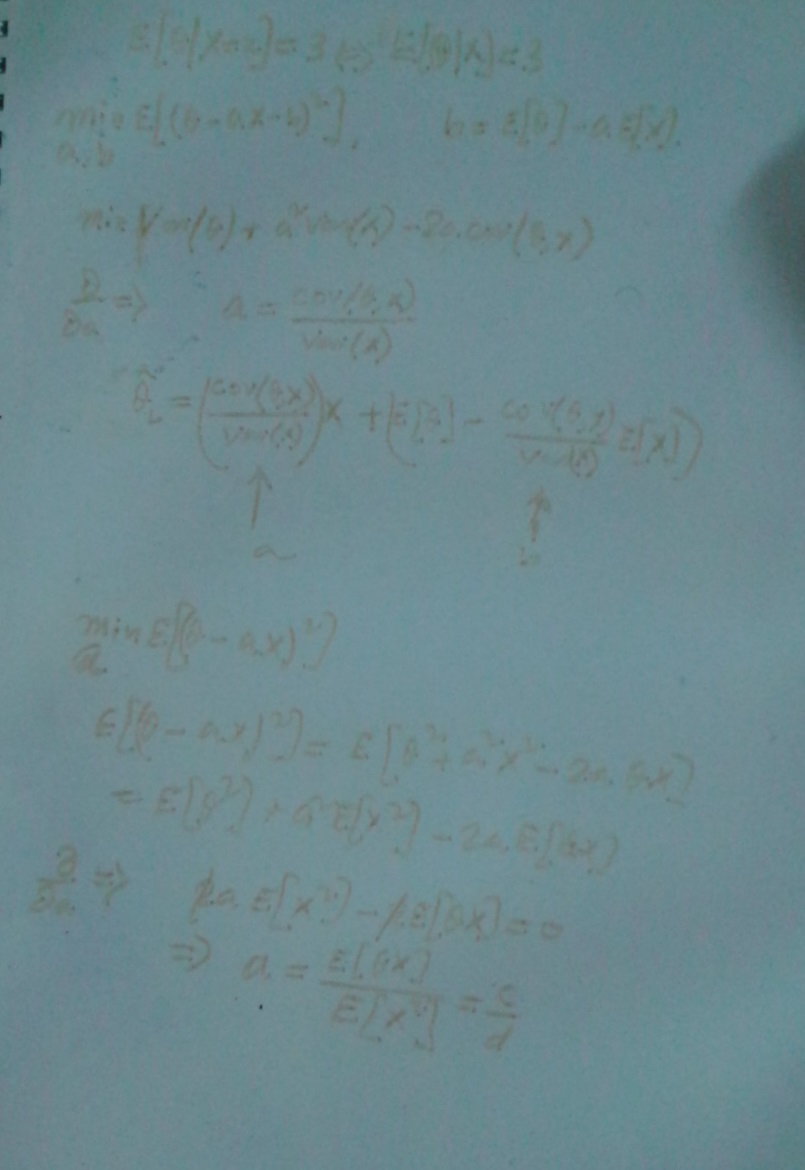 E[θ|X=x] = 3 E[θ|X] = 3
min a,b E[(θ-aX-b)²], b = E[θ] - aE[X]
min Var(θ) + a² Var(X) - 2a.cov(θ,X)
∂/∂a ⇒ a = cov(θ,X)/Var(X)
θ̂_L = (cov(θ,X)/Var(X))X + (E[θ] - cov(θ,X)/Var(X) E[X])
↑ ↑
a b
min a E[(θ-aX)²]
E[(θ-aX)²] = E[θ² + a²X² - 2a.θX]
= E[θ²] + a²E[X²] - 2aE[θX]
∂/∂a ⇒ 2a E[X²] - 2E[θX] = 0
⇒ a = E[θX]/E[X²] = c/d